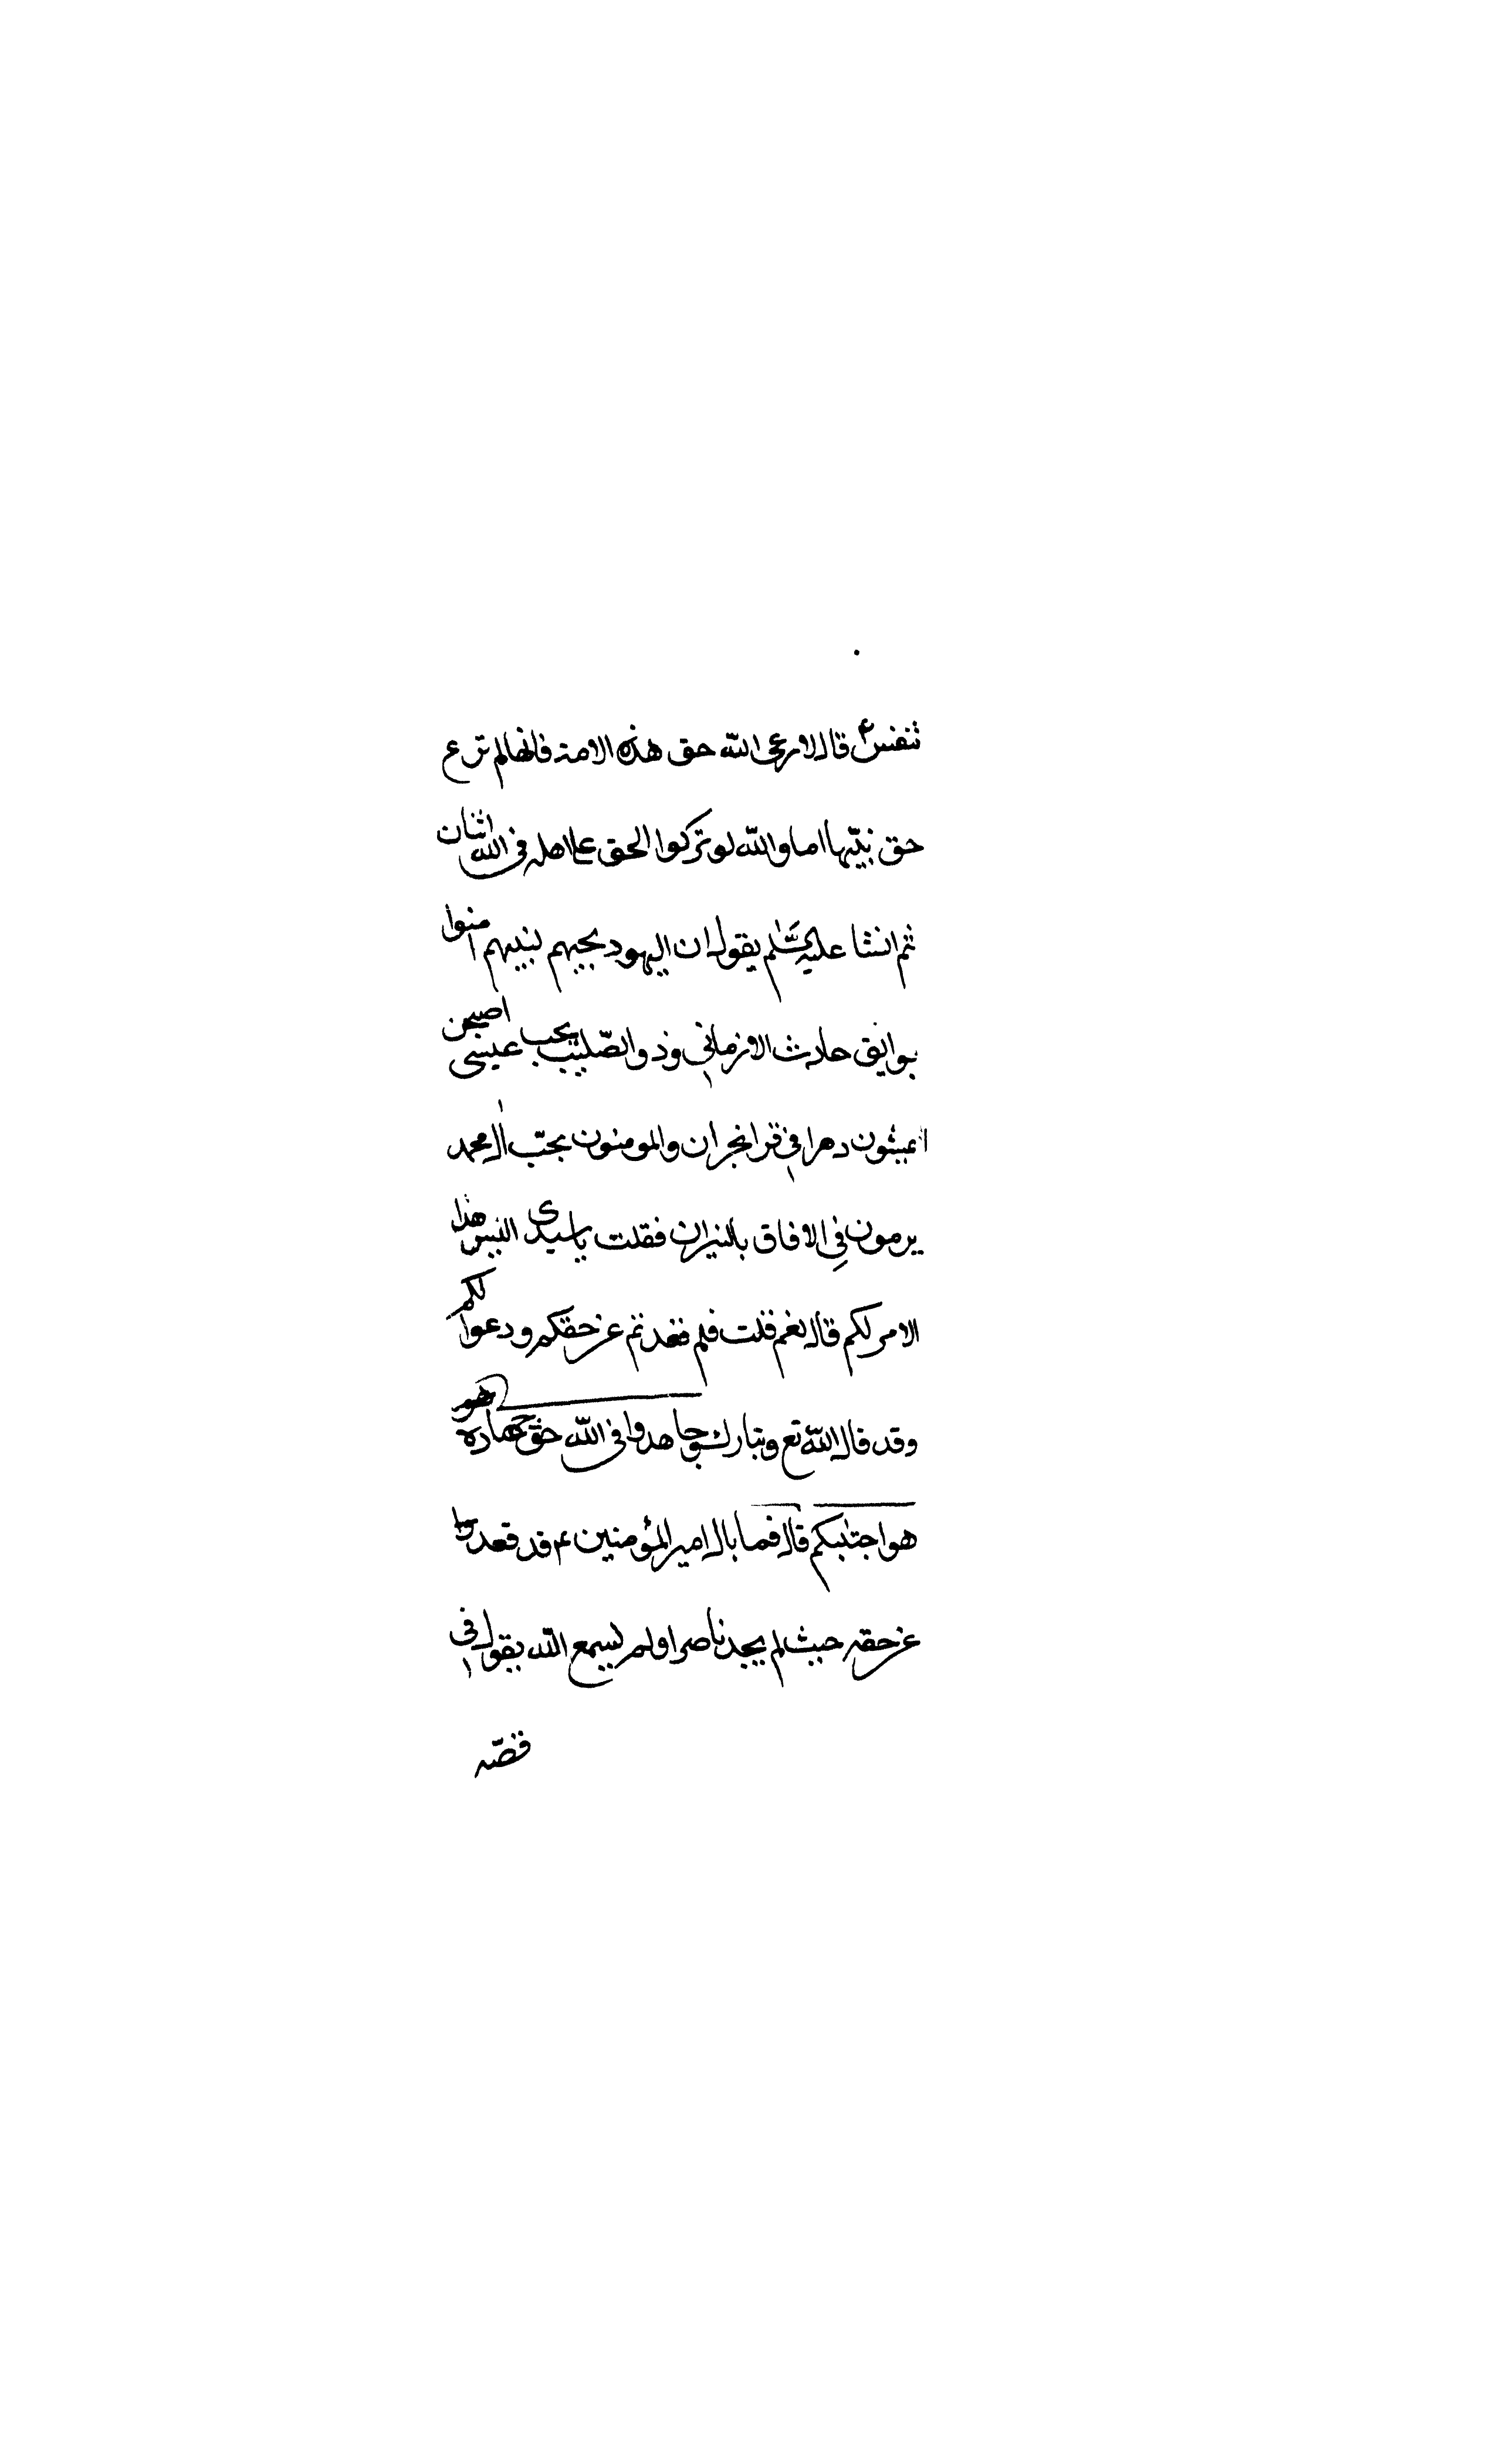 تنفس ع قال لا رعى الله حق هذه الامة فانها لم ترع
حق نبيّها اما والله لو تركوا الحق على اهله في الله اثنان
ثم انشا عليه السّلم يقول ان اليهود بحبهم لنبيهم امنوا
بوايق حادث الازماني وذو الصّليب بحب عيسى اصبحن
يمشون دهرا في قرا نجران والمومنون بحبّ ال محمد
يرمون في الافاق بالنيران فقلت يا سيدى اليس هذا
الامر لكم قال نعم قلت فلم قعدتم عن حقكم ودعواكم
وقد قال الله تع وتبارك وجاهدوا في الله حق جهاده هو
هو اجتبيكم قال فما بال امير المؤمنين ع قد قعد
عن حقه حيث لم يجد ناصرا ولم يسمع الله يقول في
قصّه